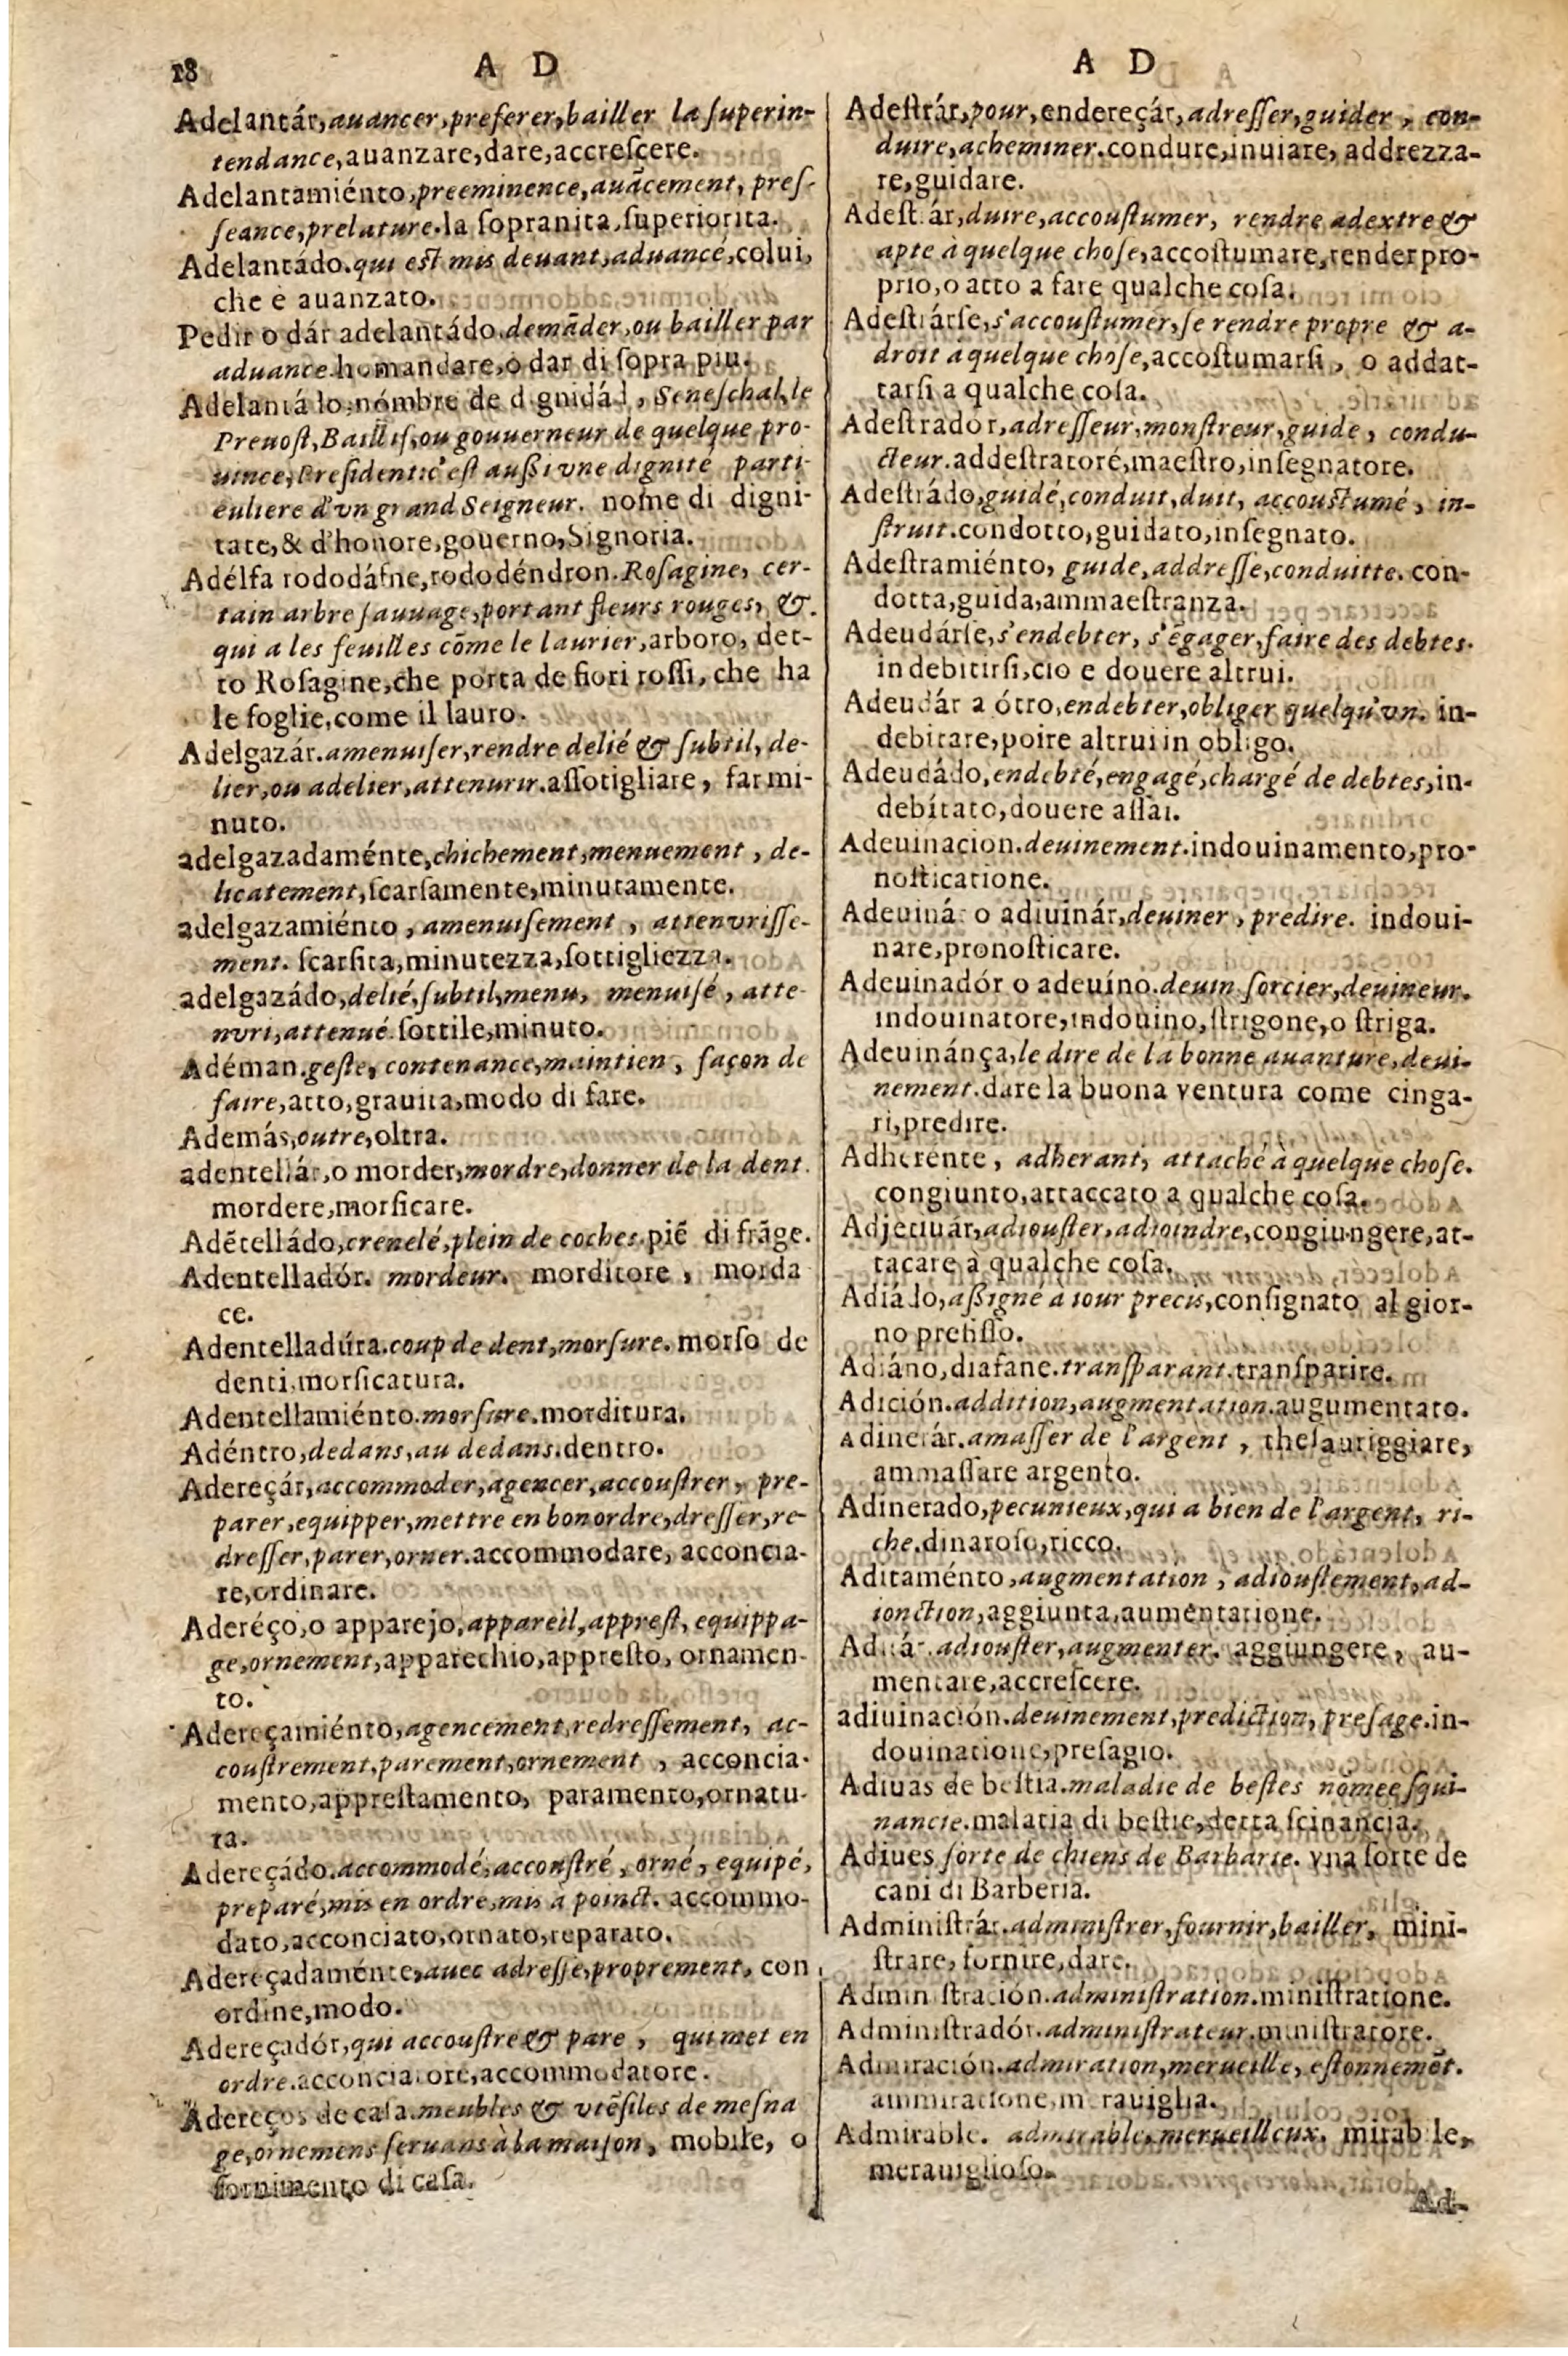 18 A D
Adelantár, auancer, preferer, bailler la ſuperin-
tendance, auanzare, dare, accreſcere.
Adelantamiénto, preeminence, auācement, preſ-
ſeance, prelature. la ſopranita, ſuperiorita.
Adelantádo. qui eſt mis deuant, aduancé, colui,
che è auanzato.
Pedir o dár adelantádo. demāder, ou bailler par
aduance. homandare, o dar di ſopra piu.
Adelantádo, nómbre de dignidád, Seneſchal, le
Preuoſt, Baillif, ou gouuerneur de quelque pro-
uince, Preſident: c'eſt außi vne dignité parti-
culiere d'vn grand Seigneur. nome di digni-
tate, & d'honore, gouerno, Signoria.
Adélfa rododáfne, rododéndron. Roſagine, cer-
tain arbre ſauuage, portant fleurs rouges, &
qui a les feuilles cōme le laurier, arboro, det-
to Roſagine, che porta de fiori roſſi, che ha
le foglie, come il lauro.
Adelgazár. amenuiſer, rendre delié & ſubtil, de-
lier, ou adelier, attenurir. aſſotigliare, far mi-
nuto.
adelgazadaménte, chichement, menuement, de-
licatement, ſcarſamente, minutamente.
adelgazamiénto, amenuiſement, attenvriſſe-
ment. ſcarſita, minutezza, ſottigliezza.
adelgazádo, delié, ſubtil, menu, menuiſé, atte-
nvri, attenué. ſottile, minuto.
Adéman. geſte, contenance, maintien, façon de
faire, atto, grauita, modo di fare.
Además, outre, oltra.
adentellár, o morder, mordre, donner de la dent.
mordere, morſicare.
Adētelládo, crenelé, plein de coches. piē di frāge.
Adentelladór. mordeur. morditore, morda
ce.
Adentelladúra. coup de dent, morſure. morſo de
denti, morſicatura.
Adentellamiénto. morſure. morditura.
Adéntro, dedans, au dedans. dentro.
Adereçár, accommoder, agencer, accouſtrer, pre-
parer, equipper, mettre en bon ordre, dreſſer, re-
dreſſer, parer, orner. accommodare, acconcia-
re, ordinare.
Aderéço, o apparejo, appareil, appreſt, equippa-
ge, ornement, apparechio, appreſto, ornamen-
to.
Adereçamiénto, agencement, redreſſement, ac-
couſtrement, parement, ornement, acconcia-
mento, appreſtamento, paramento, ornatu-
ra.
Adereçádo. accommodé, accouſtré, orné, equipé,
preparé, mis en ordre, mis à poinct. accommo-
dato, acconciato, ornato, reparato.
Adereçadaménte, auec adreſſe, proprement, con
ordine, modo.
Adereçadór, qui accouſtre & pare, qui met en
ordre. acconciatore, accommodatore.
Adereços de caſa. meubles & vtēſiles de meſna
ge, ornemens ſeruans à la maiſon, mobile, o
fornimento di caſa.
A D
Adeſtrár, pour, endereçár, adreſſer, guider, con-
duire, acheminer. condure, inuiare, addrezza-
re, guidare.
Adeſtrár, duire, accouſtumer, rendre adextre &
apte à quelque choſe, accoſtumare, render pro-
prio, o atto a fare qualche coſa.
Adeſtrárſe, s'accouſtumer, ſe rendre propre & a-
droit à quelque choſe, accoſtumarſi, o addat-
tarſi a qualche coſa.
Adeſtrador, adreſſeur, monſtreur, guide, condu-
cteur. addeſtratoré, maeſtro, inſegnatore.
Adeſtrádo, guidé, conduit, duit, accouſtumé, in-
ſtruit. condotto, guidato, inſegnato.
Adeſtramiénto, guide, addreſſe, conduitte. con-
dotta, guida, ammaeſtranza.
Adeudárſe, s'endebter, s'ēgager, faire des debtes.
indebitirſi, cio e douere altrui.
Adeudár a ótro, endebter, obliger quelqu'vn. in-
debitare, poire altrui in obligo.
Adeudádo, endebté, engagé, chargé de debtes, in-
debítato, douere aſſai.
Adeuinacion. deuinement. indouinamento, pro-
noſticatione.
Adeuinár o adiuinár, deuiner, predire. indoui-
nare, pronoſticare.
Adeuinadór o adeuíno. deuin ſorcier, deuineur.
indouinatore, indouino, ſtrigone, o ſtriga.
Adeuinánça, le dire de la bonne auanture, deui-
nement. dare la buona ventura come cinga-
ri, predire.
Adherénte, adherant, attaché à quelque choſe.
congiunto, attaccato a qualche coſa.
Adjectiuár, adiouſter, adioindre, congiungere, at-
tacare à qualche coſa.
Adiádo, aßigné à iour precis, conſignato al gior-
no prefiſſo.
Adiáno, diafane. tranſparant. tranſparire.
Adición. addition, augmentation. augumentato.
Adinerár. amaſſer de l'argent, theſauriggiare,
ammaſſare argento.
Adinerado, pecunieux, qui a bien de l'argent, ri-
che. dinaroſo, ricco.
Aditaménto, augmentation, adiouſtement, ad-
ionction, aggiunta, aumentatione.
adiouſter, augmenter. aggiungere, au-
mentare, accreſcere.
adiuinación. deuinement, prediction, preſage. in-
douinatione, preſagio.
Adiuas de beſtia. maladie de beſtes nōmee ſqui-
nancie. malatia di beſtie, detta ſcinancia.
Adiues ſorte de chiens de Barbarie. vna ſorte de
cani di Barberia.
Adminiſtrár. adminiſtrer, fournir, bailler, mini-
ſtrare, fornire, dare.
Adminiſtración. adminiſtration. miniſtratione.
Adminiſtradór. adminiſtrateur. miniſtratore.
Admiración. admiration, merueille, eſtonnemēt.
ammiratione, merauiglia.
Admirable. admirable, merueilleux. mirabile,
merauiglioſo.
Ad-